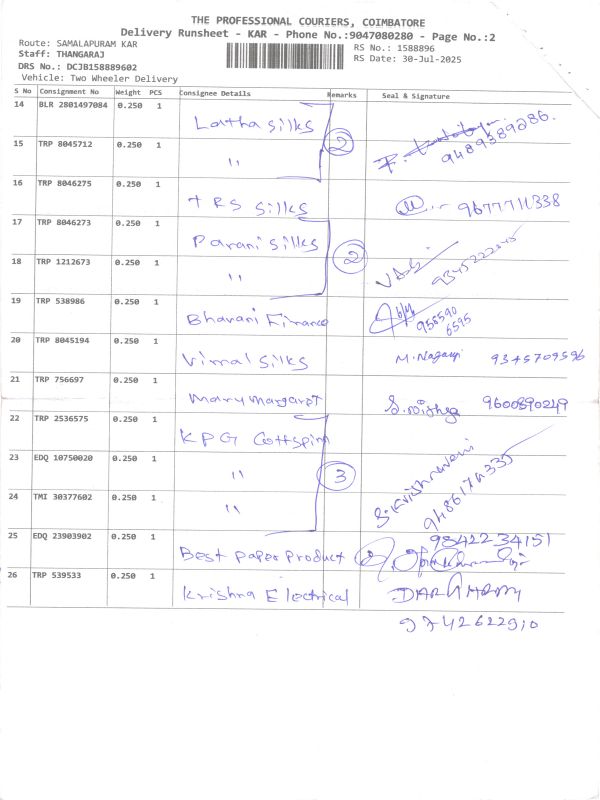 THE PROFESSIONAL COURIERS, COIMBATORE
Delivery Runsheet - KAR - Phone No.:9047080280 - Page No.:2
Route: SAMALAPURAM KAR
RS No.: 1588896
Staff: THANGARAJ
RS Date: 30-Jul-2025
DRS No.: DCJB158889602
Vehicle: Two Wheeler Delivery
S No Consignment No Weight PCS Consignee Details Remarks Seal & Signature
14 BLR 2801497084 0.250 1 Latha silks
2
9489389286.
15 TRP 8045712 0.250 1 "
16 TRP 8046275 0.250 1 TRS silks 9677711338
17 TRP 8046273 0.250 1 Parani silks
2
18 TRP 1212673 0.250 1 "
19 TRP 538986 0.250 1 Bhavani Finance 956590
6595
20 TRP 8045194 0.250 1 Vimal silks M. Nagamji 9345709596
21 TRP 756697 0.250 1 Mary margaret 9600890249
22 TRP 2536575 0.250 1 KPG Cottspin
3
23 EDQ 10750020 0.250 1 "
24 TMI 30377602 0.250 1 "
25 EDQ 23903902 0.250 1 Best paper product 98422 34151
26 TRP 539533 0.250 1 Krishna Electrical